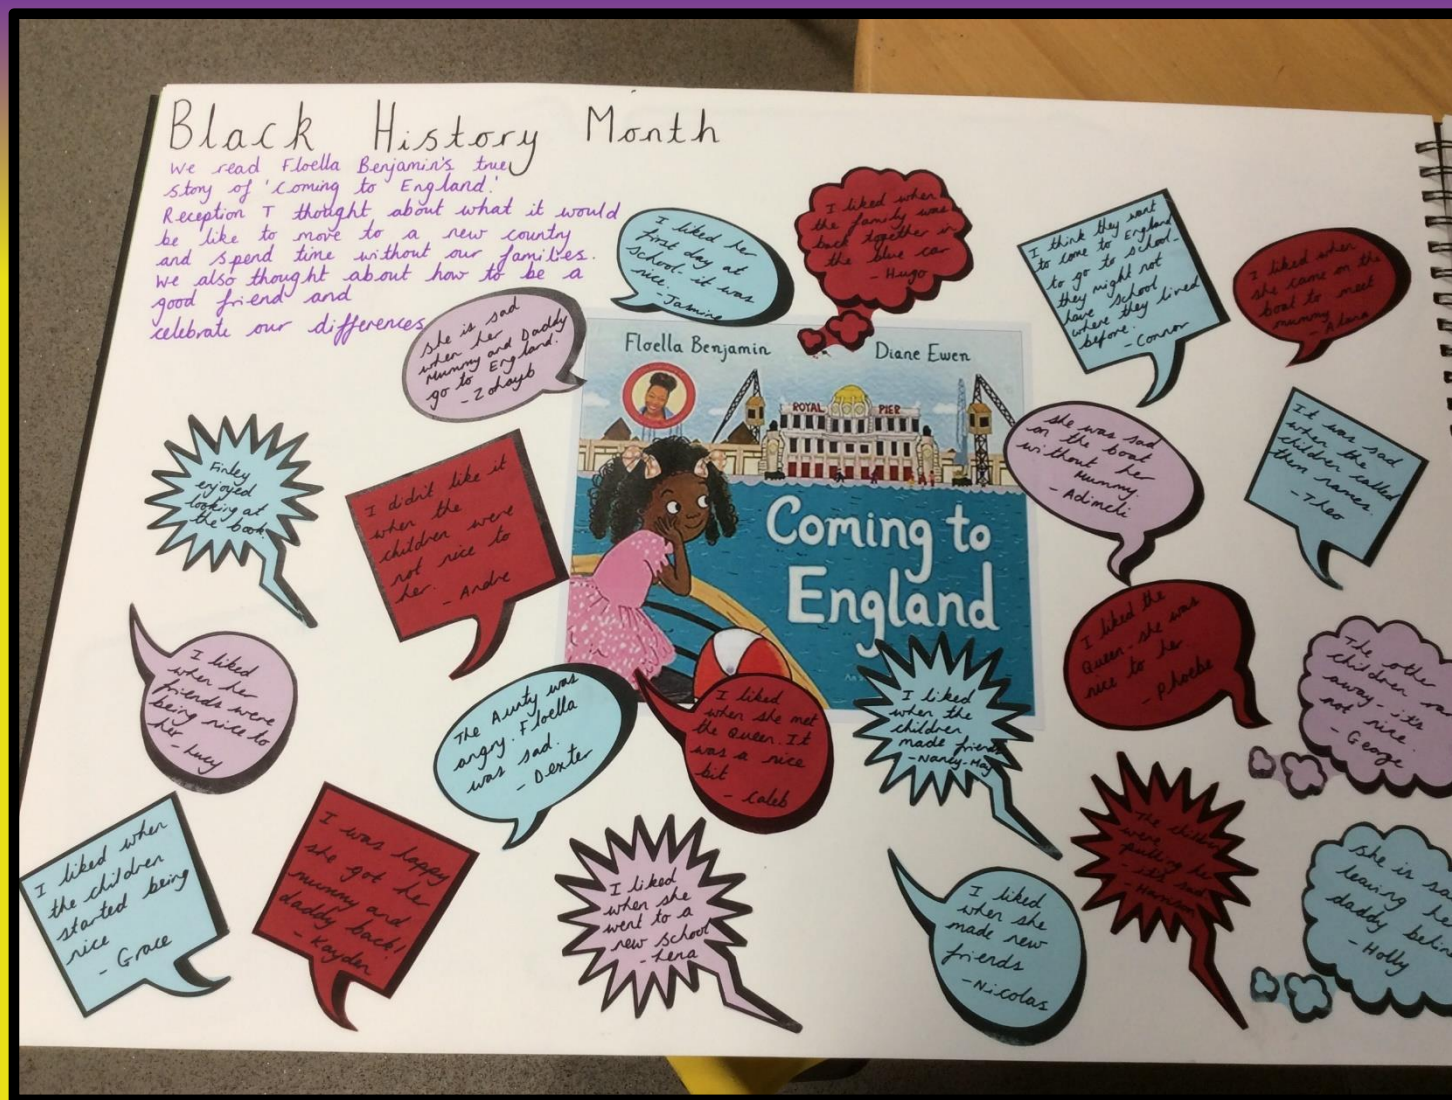 Black History Month
We read Floella Benjamin's true
story of 'Coming to England.'
Reception T thought about what it would
be like to move to a new country
and spend time without our families.
We also thought about how to be a
good friend and
celebrate our differences
I liked her
first day at
school. it was
nice.
- Jasmine
I liked when
the family was
back together in
the blue car
- Hugo
I think they want
to come to England
to go to school -
they might not
have school
where they lived
before.
- Connor
I liked when
she came on the
boat to meet
mummy
She is sad
when her
Mummy and Daddy
go to England.
- Zohayb
Floella Benjamin
Diane Ewen
ROYAL PIER
Coming to
England
She was sad
on the boat
without her
Mummy.
- Adimeli
It was sad
when the
children called
them names.
- Theo
Finley
enjoyed
looking at
the book.
I didn't like it
when the
children were
not nice to
her.
- Andre
I liked the
Queen - she was
nice to her
- Phoebe
I liked
when her
friends were
being nice to
her - Lucy
The Aunty was
angry. Floella
was sad.
- Dexter
I liked
when she met
the Queen. It
was a nice
bit
- Caleb
I liked
when the
children
made friends
- Nancy-May
The other
children
away - it's
not nice.
- George
I liked when
the children
started being
nice
- Grace
I was happy
she got her
mummy and
daddy back!
- Kayden
I liked
when she
went to a
new school
- Lena
I liked
when she
made new
friends
- Nicolas
The children
were
pulling
- it's sad
- Harrison
She is
leaving
daddy
- Holly